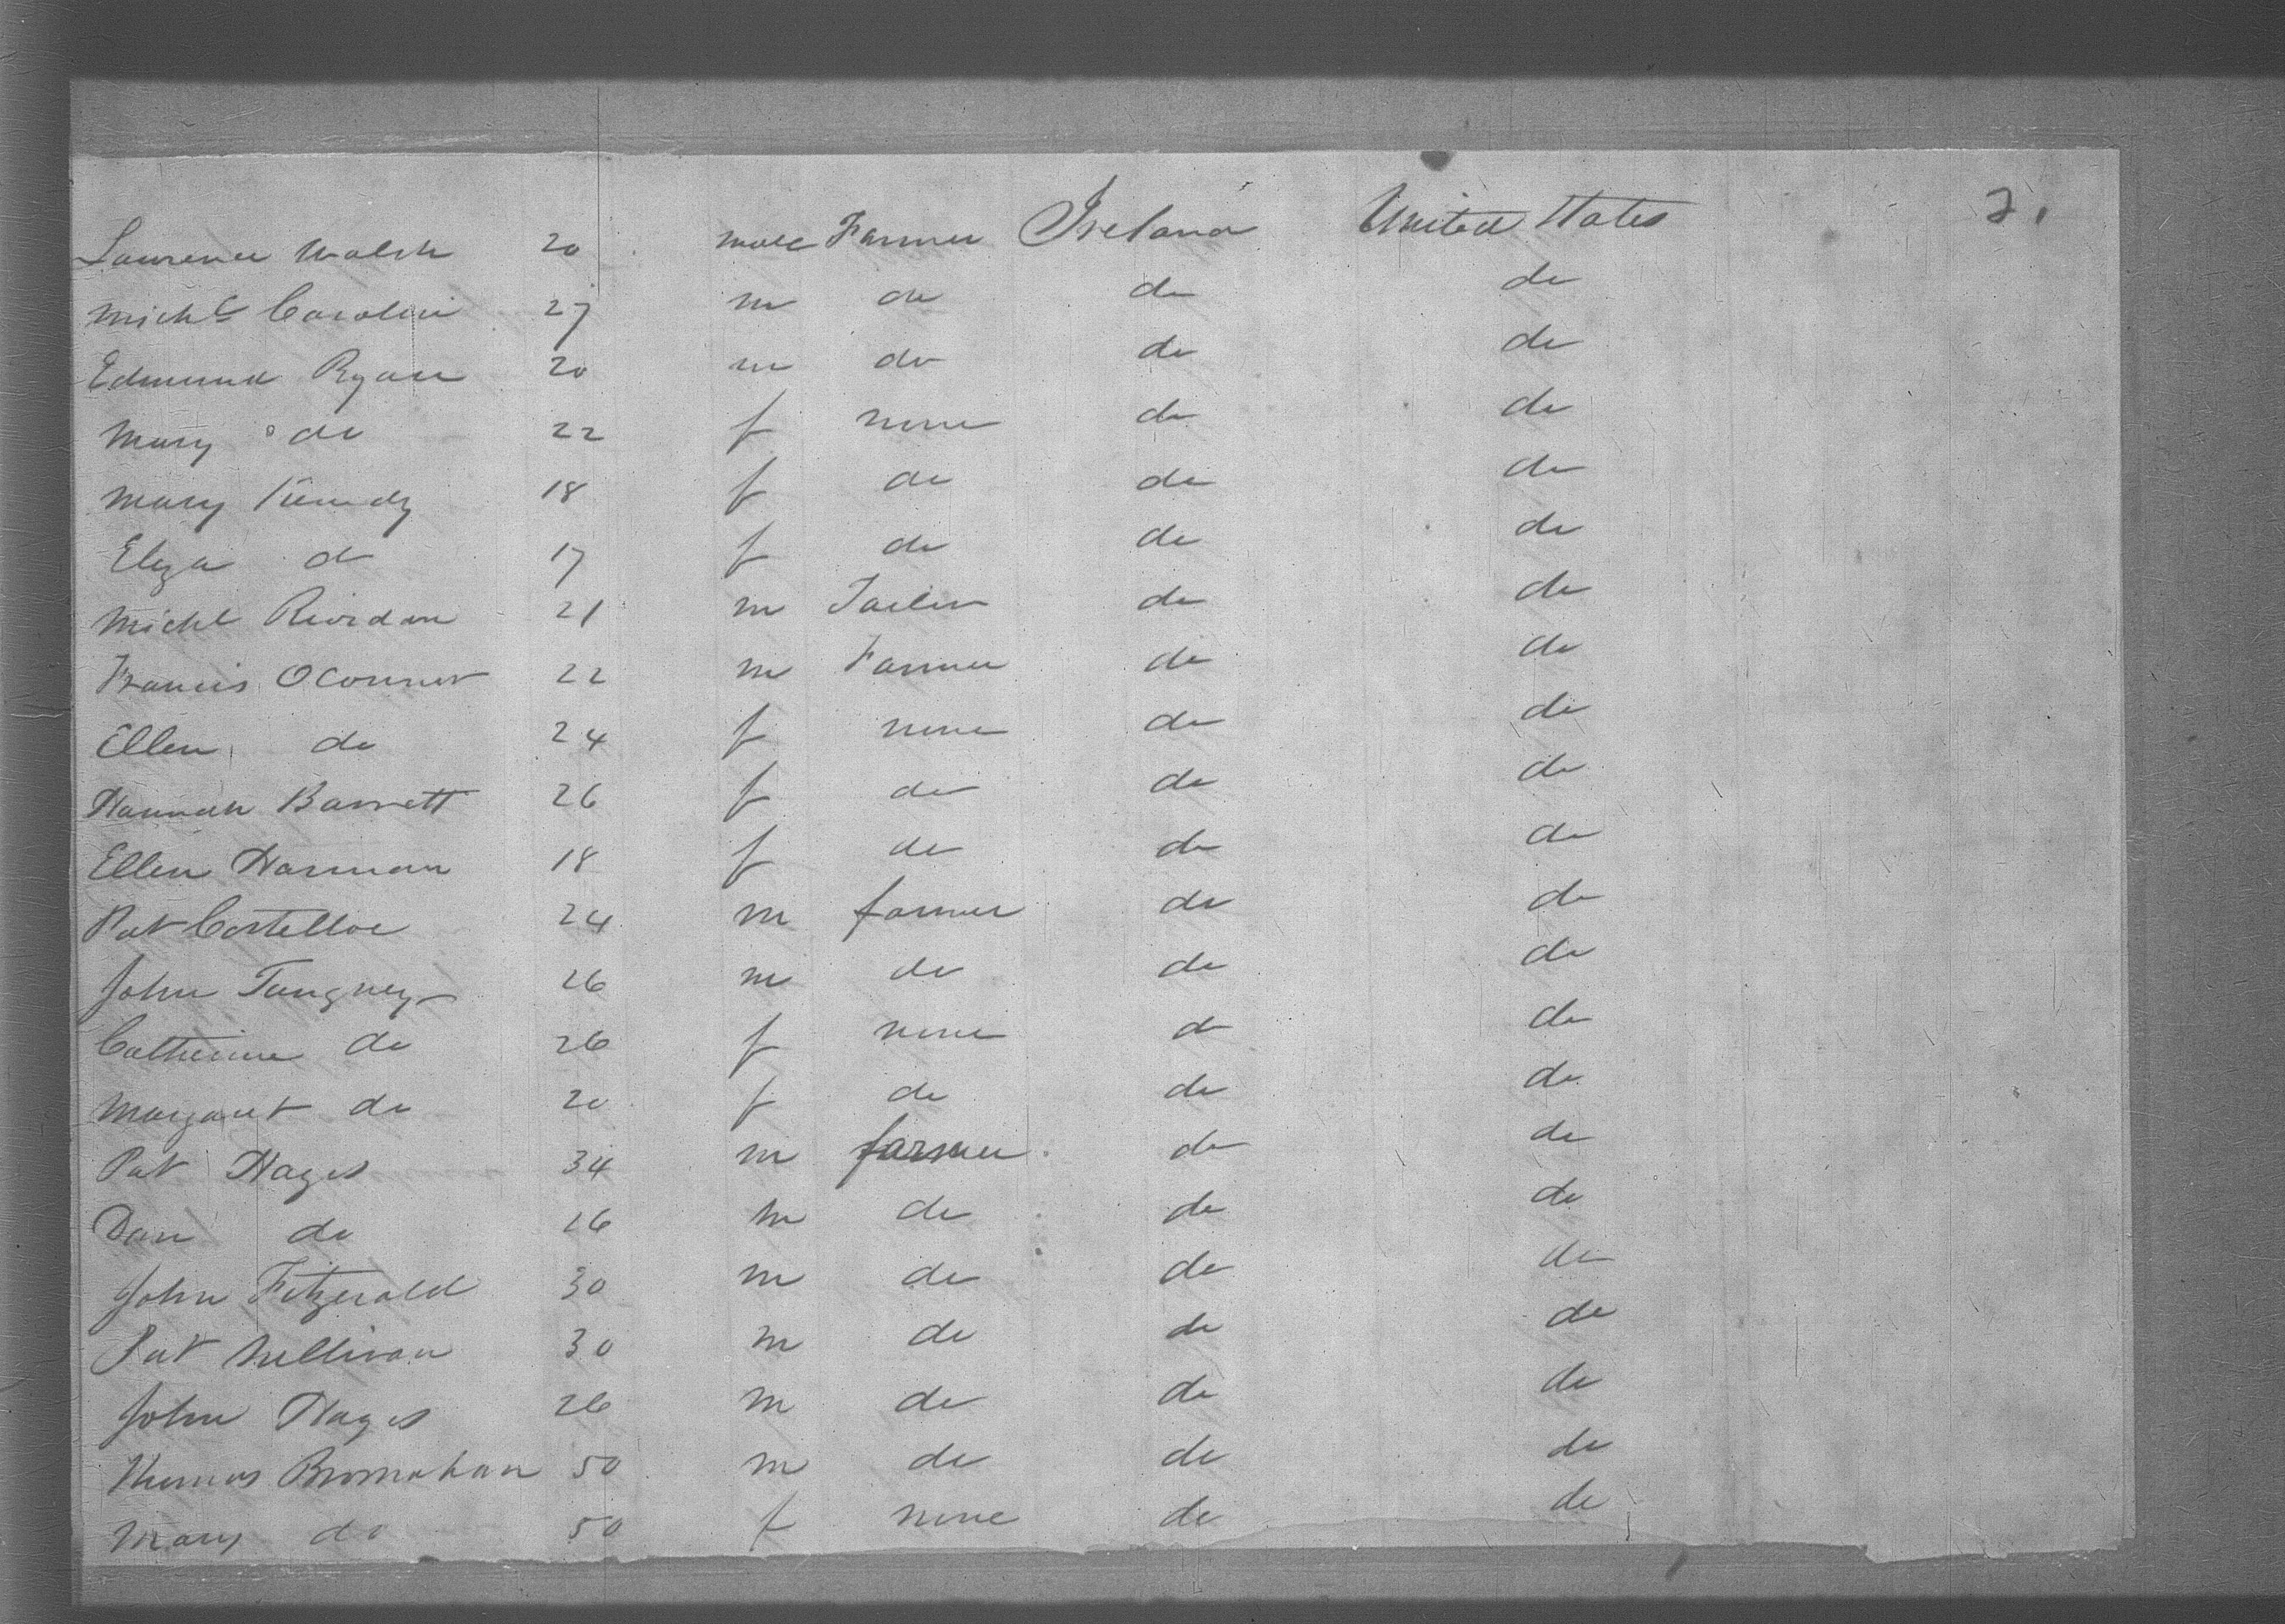 Laurence Walsh 20 male Farmer Ireland United States 2.
Michl Carolin 27 m do do do
Edmund Ryan 20 m do do do
Mary do 22 f none do do
Mary Kenedy 18 f do do do
Eliza do 17 f do do do
Michl Riordan 21 m Tailor do do
Francis OConnor 22 m Farmer do do
Ellen do 24 f none do do
Hannah Barrett 26 f do do do
Ellen Harman 18 f do do do
Pat Costelloe 24 m farmer do do
John Tangney 26 m do do do
Catherine do 26 f none do do
Margaret do 20 f do do do
Pat Hayes 34 m farmer do do
Dan do 16 m do do do
John Fitzgerald 30 m do do do
Pat Sullivan 30 m do do do
John Hayes 26 m do do do
Thomas Brosnahan 50 m do do do
Mary do 50 f none do do